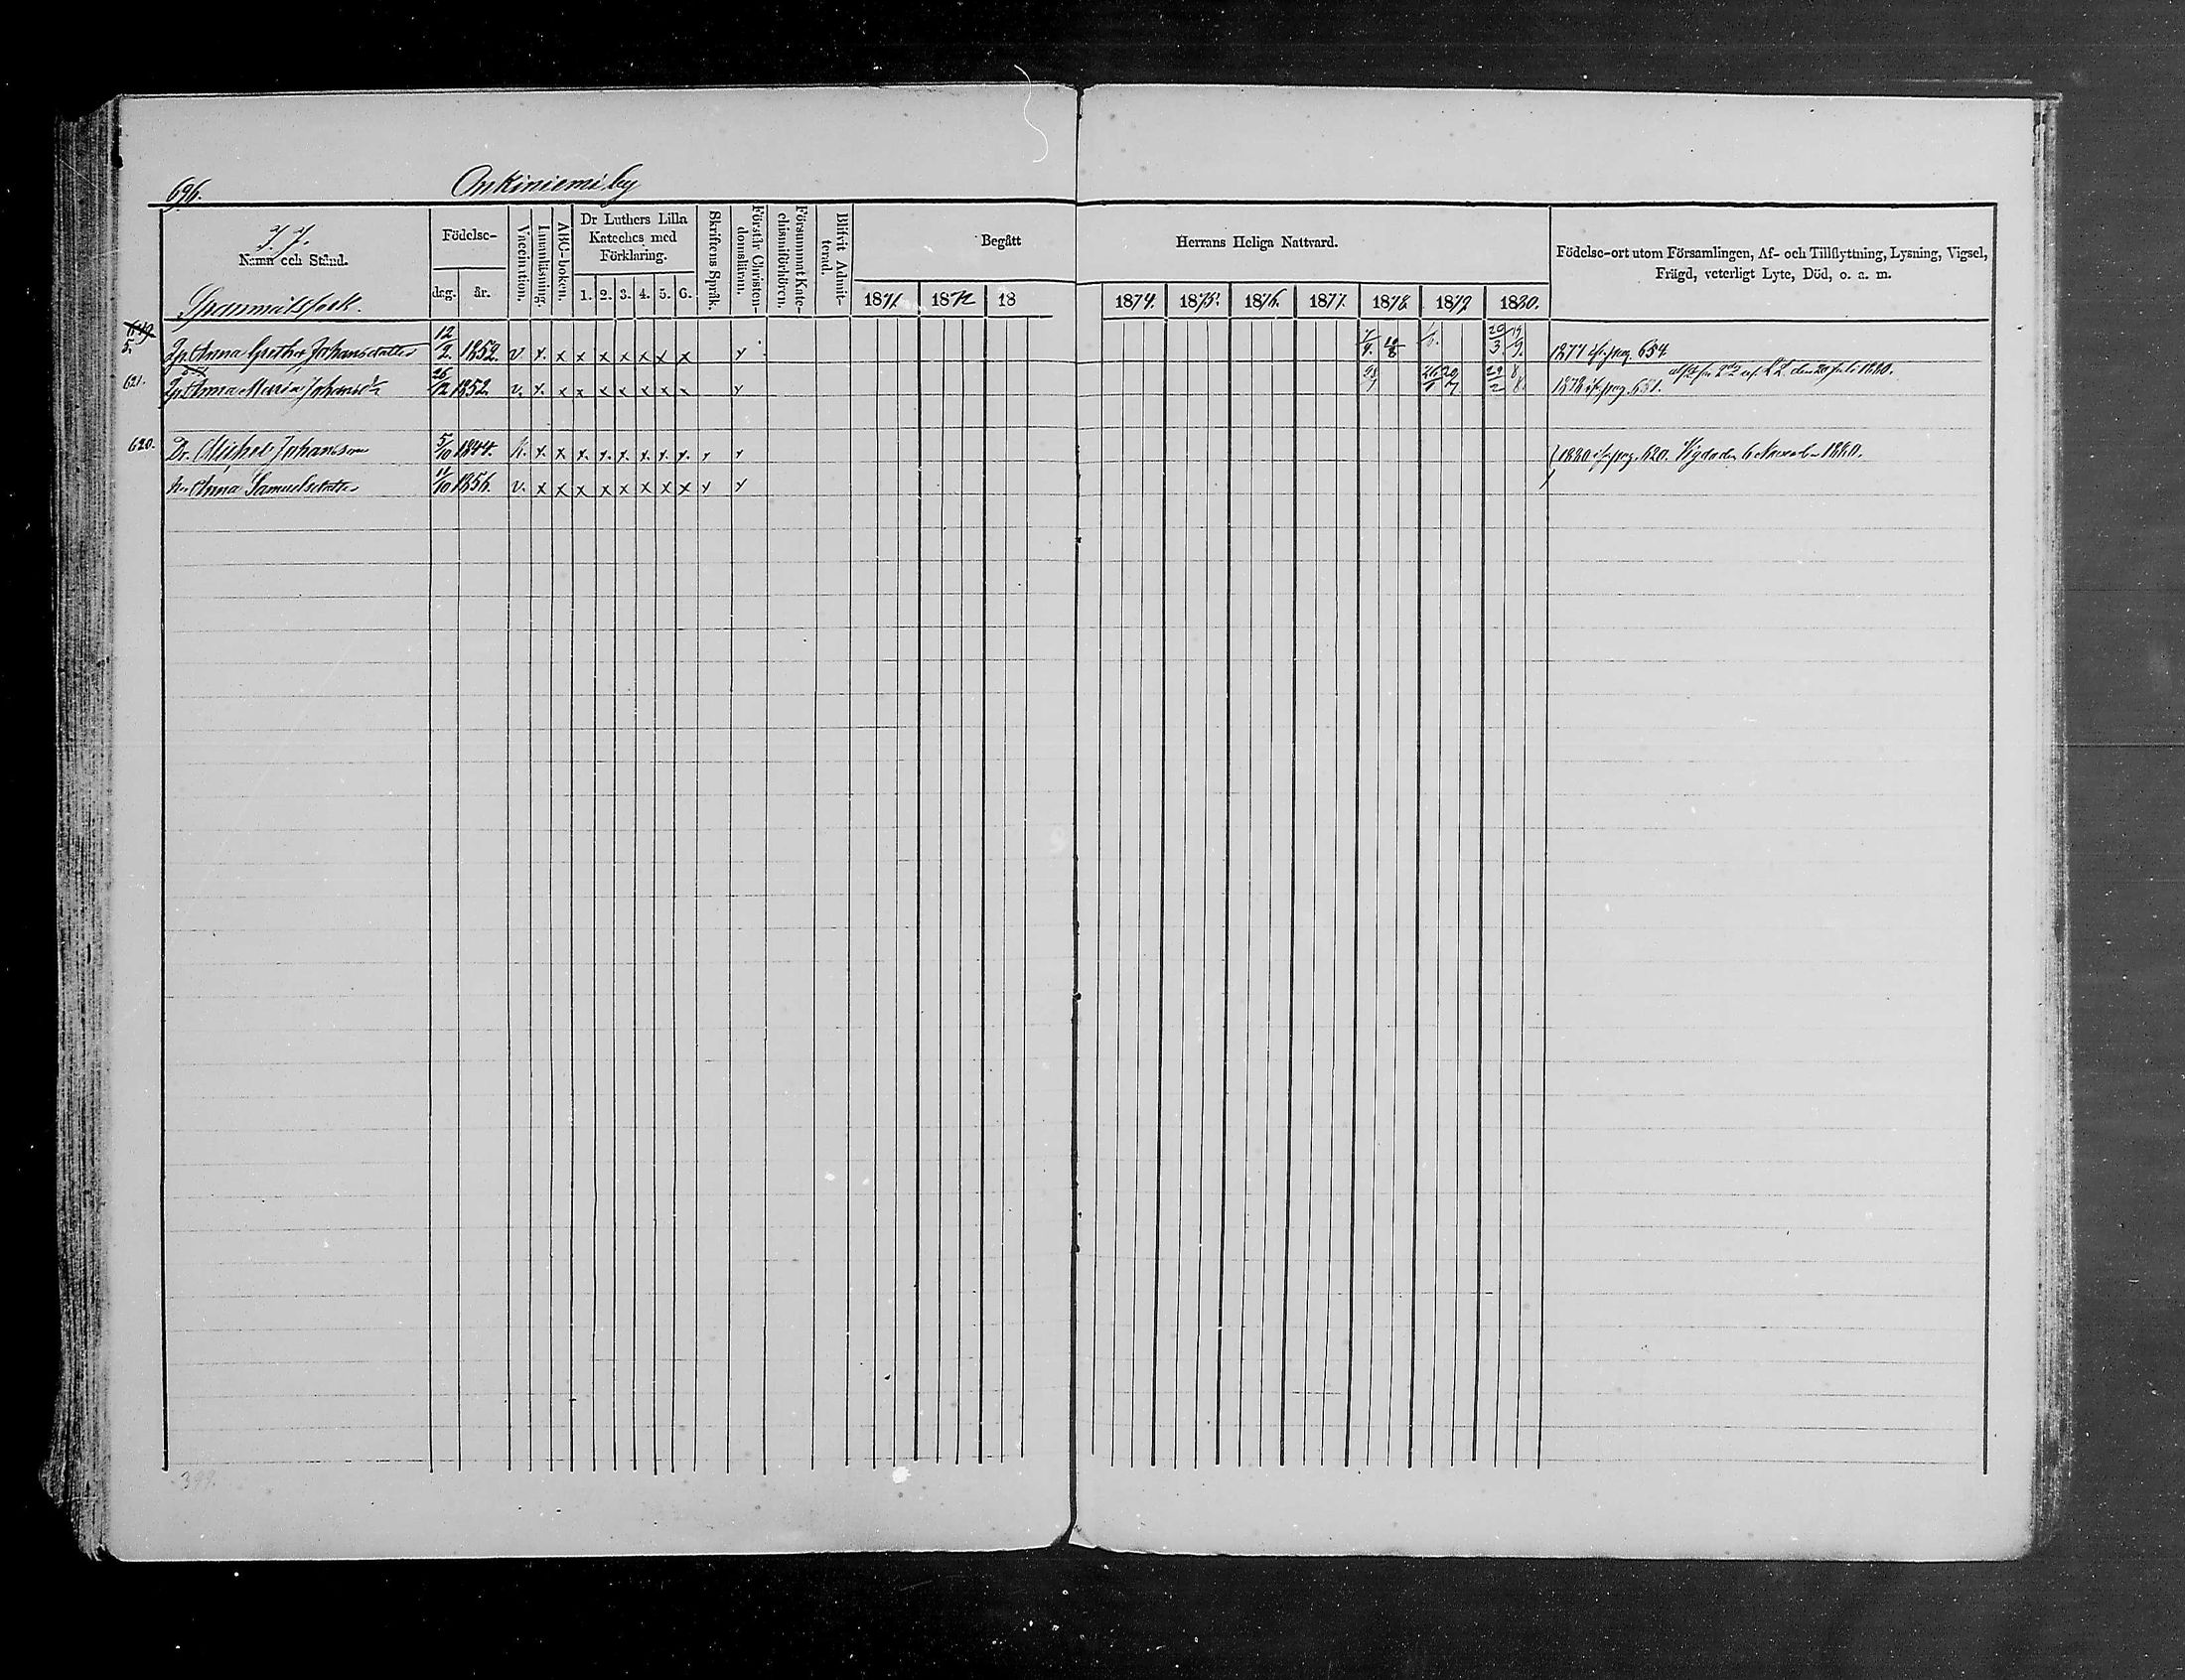 696.
Onkiniemi by
Namn och Stånd.
Födelse-
dag. år.
Vaccination.
Innanläsning.
ABC-boken.
Dr Luthers Lilla
Kateches med
Förklaring.
1. 2. 3. 4. 5. 6.
Skriftens Språk.
Förstår Christen-
domsläran.
Försummat Kate-
chismiförhören.
Blifvit Admit-
terad.
Begått
1871. 1872 18
Herrans Heliga Nattvard.
1874. 1875. 1876. 1877. 1878. 1879. 1880.
Födelse-ort utom Församlingen, Af- och Tillflyttning, Lysning, Vigsel,
Frägd, veterligt Lyte, Död, o. a. m.
5. Anna Gretha Johansdotter 12/2. 1852. v. x. x x x x x x x x 20/3. 19/9. 1877 pag. 654.
den 20 Juli 1880.
621. Anna Maria Johansd 26/12 1852. v. x. x x x x x x x x 29/2 8/8 1878 pag. 651.
620. Dr. Michel Johansson 5/10 1844. K. x. x x. x. x. x. x. x. x x 1880 pag. 620. Vigda den 6 November 1880.
Anna Samuelsdotter 11/10 1856. v. x x x x x x x x x x
399.